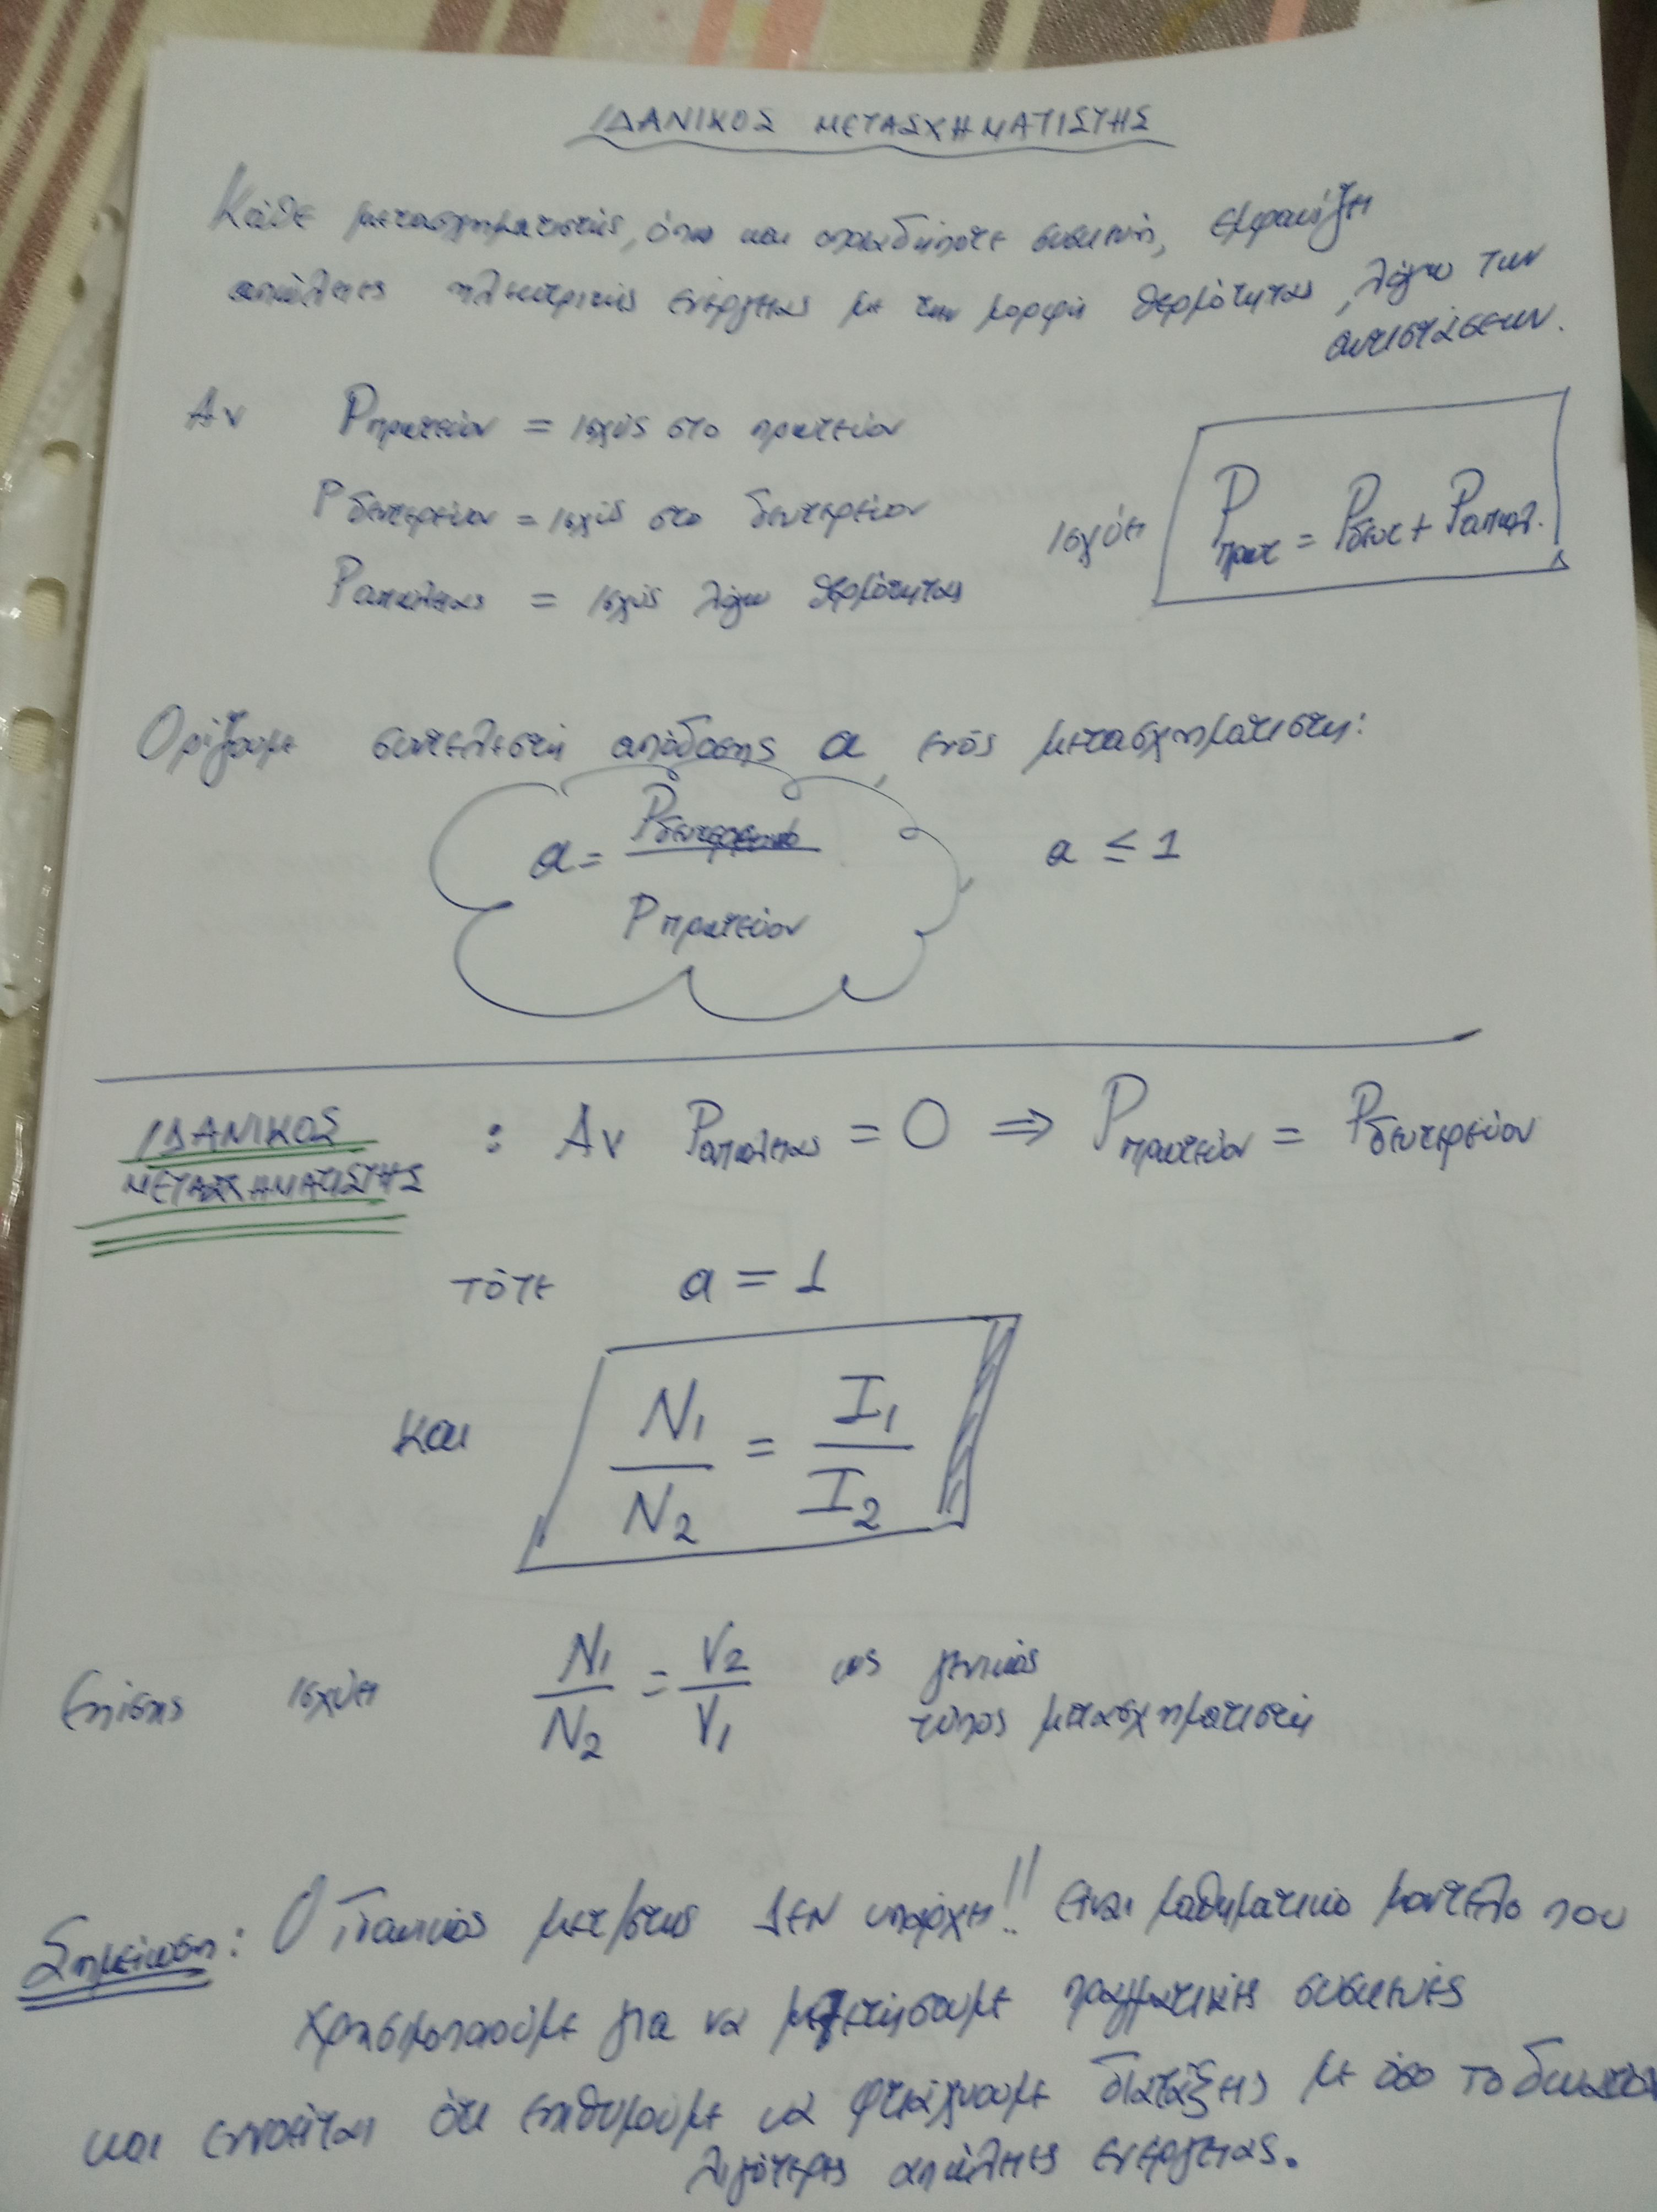 ΙΔΑΝΙΚΟΣ ΜΕΤΑΣΧΗΜΑΤΙΣΤΗΣ
Κάθε μετασχηματιστής, όπως και οποιαδήποτε συσκευή, εμφανίζει
απώλειες ηλεκτρικής ενέργειας με την μορφή θερμότητας, λόγω των
αντιστάσεων.
Αν Pπρωτεύον = ισχύς στο πρωτεύον
Pδευτερεύον = ισχύς στο δευτερεύον
Pαπώλειας = ισχύς λόγω θερμότητας
ισχύει Pπρωτ = Pδευτ + Pαπωλ.
Ορίζουμε συντελεστή απόδοσης α, ενός μετασχηματιστή:
α = Pδευτερεύον / Pπρωτεύον , α ≤ 1
ΙΔΑΝΙΚΟΣ ΜΕΤΑΣΧΗΜΑΤΙΣΤΗΣ : Αν Pαπώλειας = 0 ⇒ Pπρωτεύον = Pδευτερεύον
τότε α = 1
και N1/N2 = I1/I2
Επίσης ισχύει N1/N2 = V2/V1 ως γενικός
τύπος μετασχηματιστή
Σημείωση: Ο Ιδανικός μετ/στης ΔΕΝ υπάρχει!! Είναι μαθηματικό μοντέλο που
χρησιμοποιούμε για να μελετήσουμε πραγματικές συσκευές
και εννοείται ότι επιθυμούμε να φτιάχνουμε διατάξεις με όσο το δυνατόν
λιγότερες απώλειες ενέργειας.